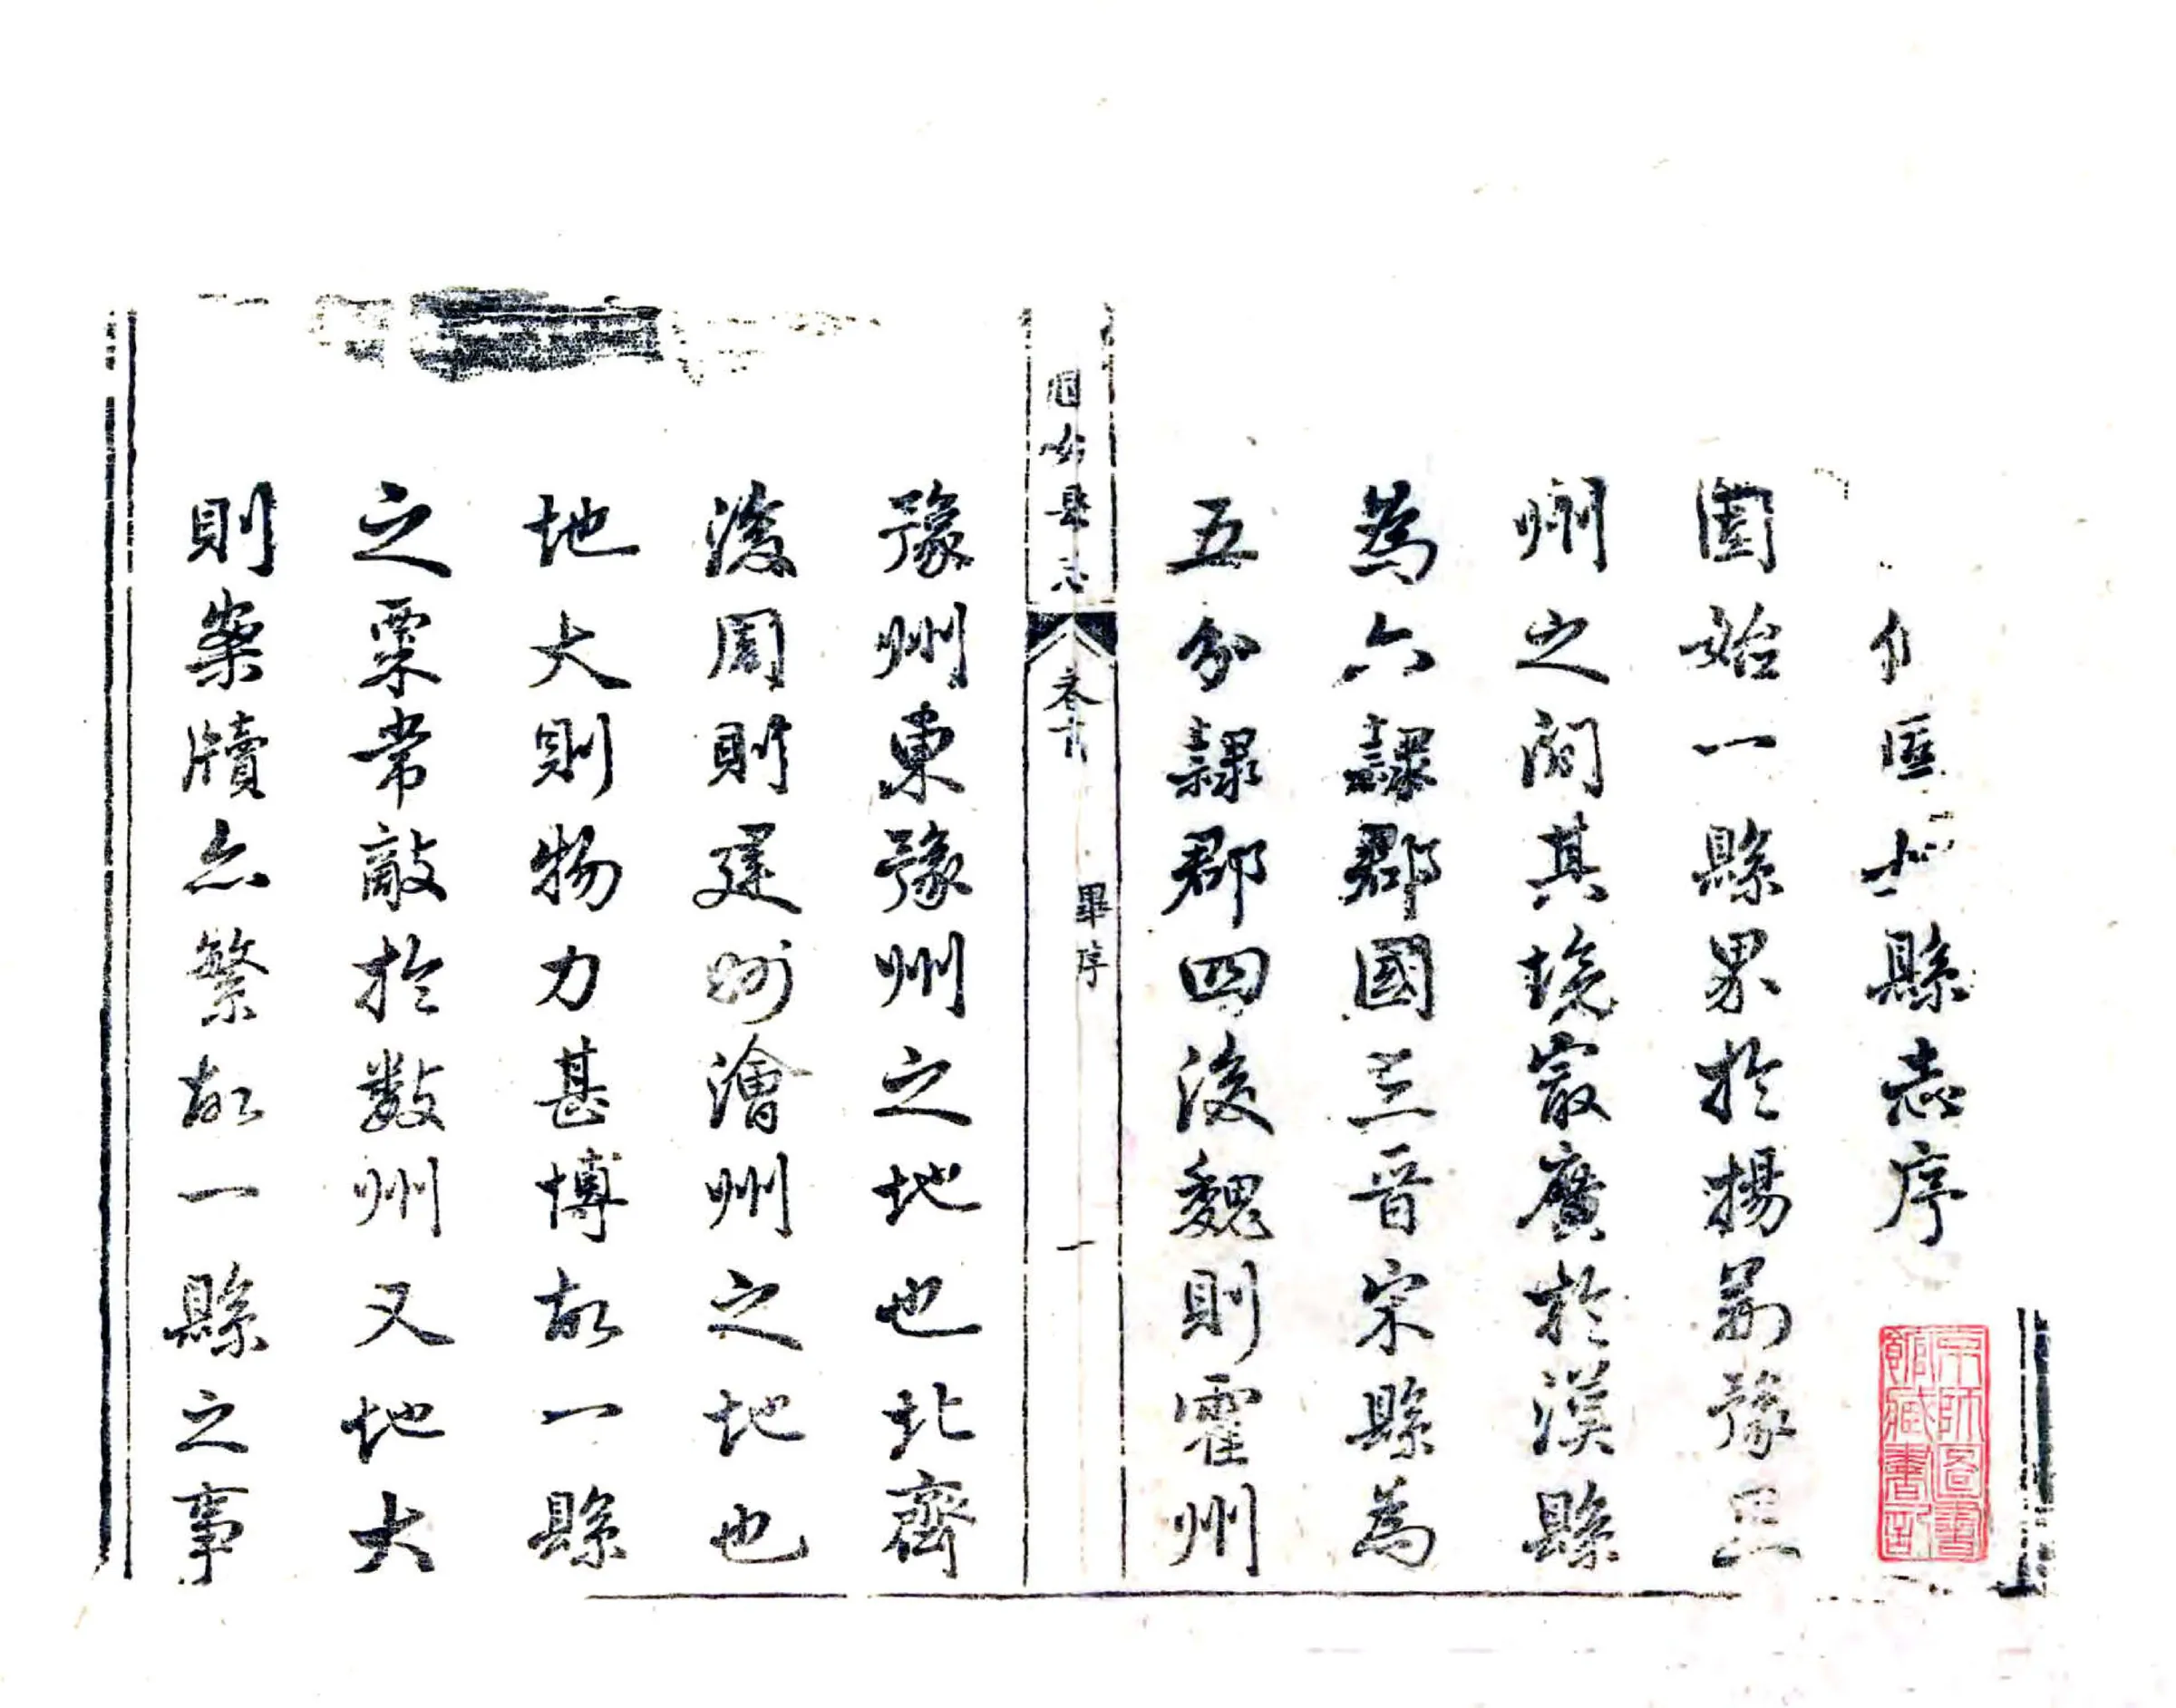 縣志序
固始一縣界於揚荊豫三
州之間其境㝡廣於漢縣
為六隸郡國三晉宋縣為
五分隸郡四後魏則霍州
固始縣志 卷首 畢序 一
豫州東豫州之地也北齊
後周則建州澮州之地也
地大則物力甚博故一縣
之粟常敵於數州又地大
則案牘亦繁故一縣之事
京師圖書
館藏書記